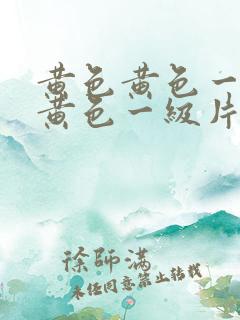 黄色黄色一
黄色一級片
徐師滿
未经同意禁止转载